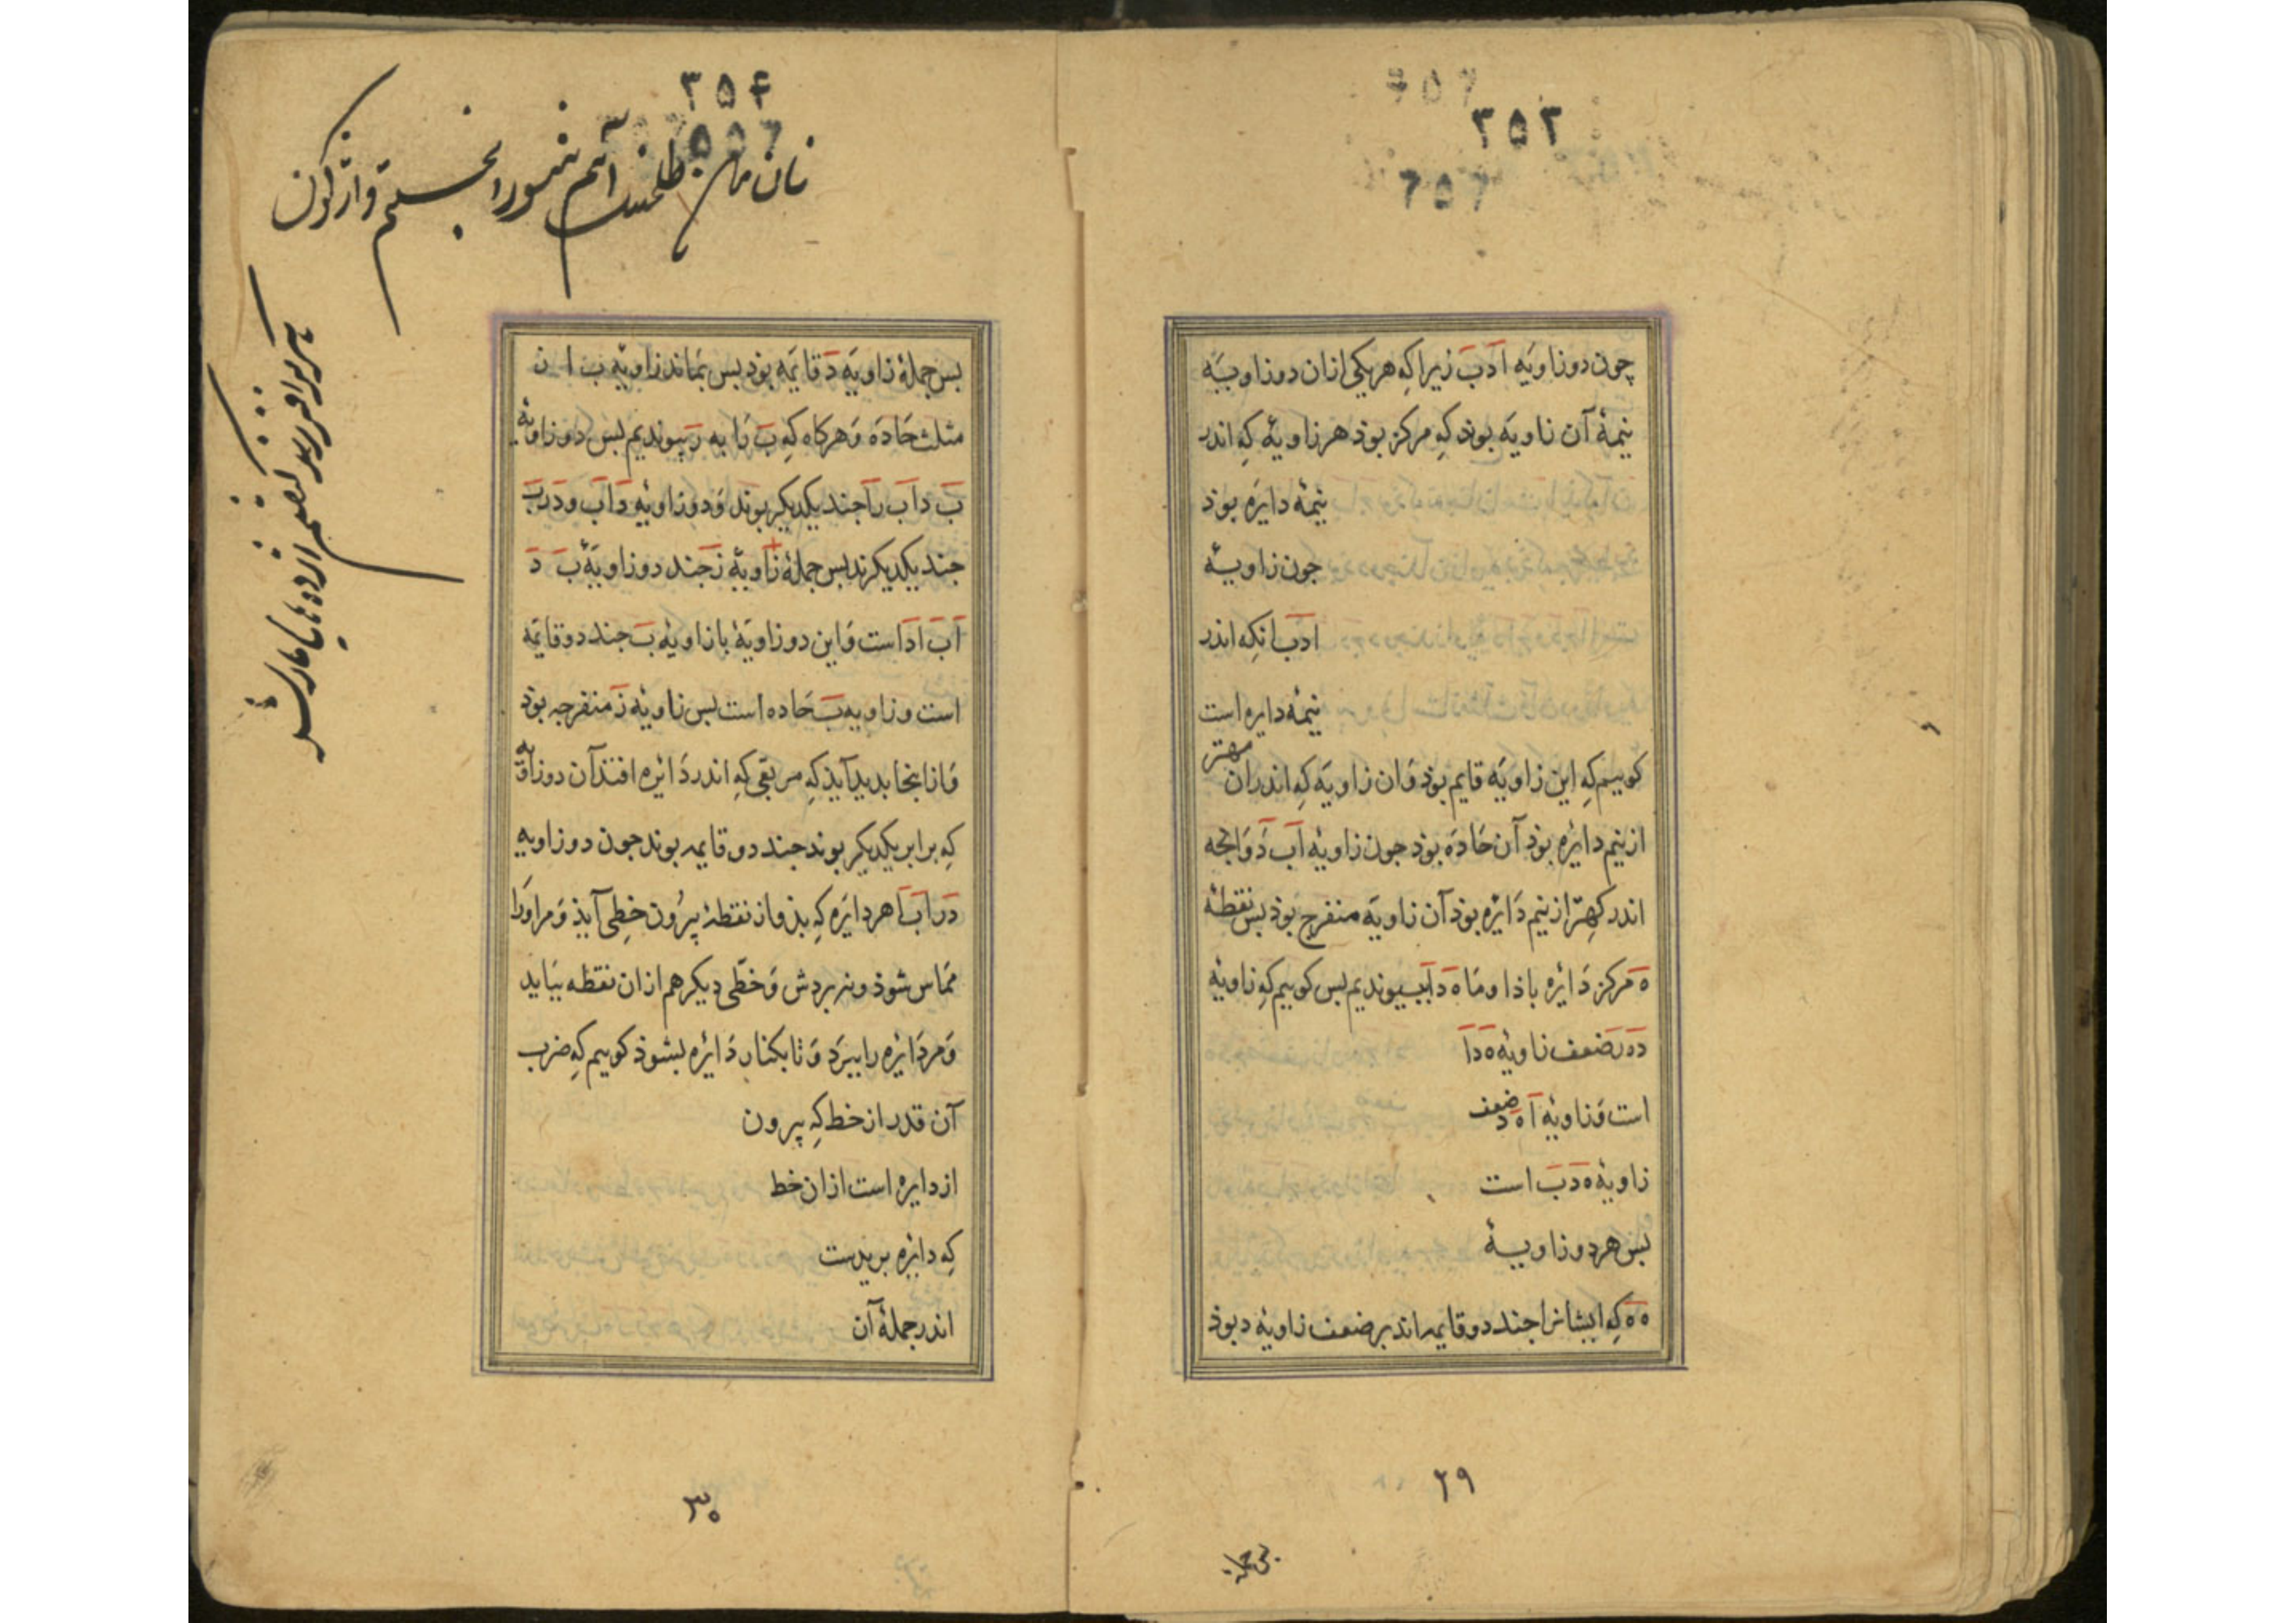 ۳۵۳
چون دو زاویَه ادب زیرا که هر یکی ازان دو زاویَه
نیمهٔ آن زاویَه بوذ که مرکز بوذ هر زاویهٔ که اندر
نیمهٔ دایره بوذ
جون زاویهٔ
ادب انکه اندر
نیمهٔ دایره است
کوییم که این زاویَه قایم بوذ وان زاویَه که اندران مهتر
از نیم دایره بوذ آن حاده بوذ جون زاویهٔ اب د وانجه
اندر کهتر از نیم دایره بوذ آن زاویه منفرج بوذ بس نقطهٔ
ه مرکز دایره باذا و ما ه د اب بپیوندیم بس کوییم که زاویهٔ
ده ر ضعف زاویهٔ ه دا
است و زاویهٔ ا ه د ضعف
زاویهٔ ه دب است
بس هر دو زاویهٔ
ه ه که ایشانرا جند دو قایمه اند بر ضعف زاویهٔ د بوذ
۲۹
بس جمله
۳۵۴
بس جملهٔ زاویَه د قایمه بوذ بس بماند زاویهٔ ب ا ن
مثلث حاده و هرکاه که ب را به ر بپیوندیم بس دو زاویهٔ
ب د اب را جند یکدیکر بوند و دو زاویهٔ د اب و د رب
جند یکدیکرند بس جملهٔ زاویهٔ ز جند دو زاویهٔ ب د
اب ادا است و این دو زاویهٔ با زاویهٔ ب جند دو قایمه
است و زاویه ب حاده است بس زاویهٔ ز منفرجه بوذ
و ازاینجا بدید آیذ که مربعی که اندر دایره افتذ آن دو زاویه
که برابر یکدیکر بوند جند دو قایمه بوند جون دو زاویه
د ر اب ا هر دایره که بذو از نقطهٔ بیرون خطی آیذ و مراورا
مماس شوذ و نبردش و خطّی دیکر هم ازان نقطه بیاید
و مر دایره را ببرد و تا بکنار دایره بشوذ کوییم که ضرب
آن قدر از خط که بیرون
از دایره است ازان خط
که دایره بریدست
اندر جملهٔ آن
۳۰